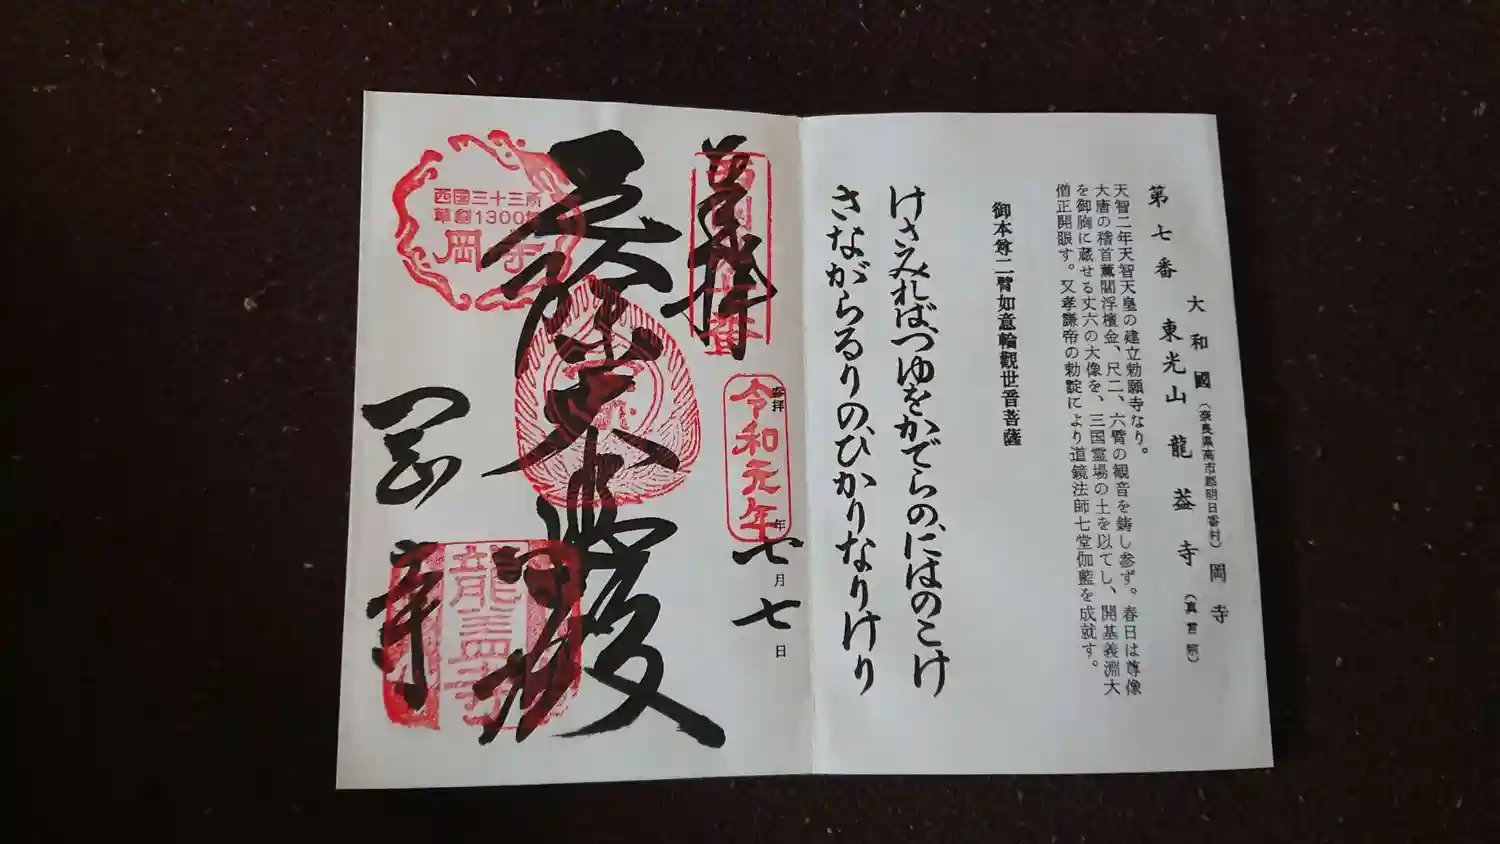 第七番
大和國(奈良県高市郡明日香村)岡寺
東光山龍蓋寺(真言宗)
天智二年天智天皇の建立勅願寺なり。
大唐の稽首薫閻浮檀金、尺二、六臂の観音を鋳し参ず。春日は尊像
を御胸に蔵せる丈六の大像を、三国霊場の土を以てし、開基義淵大
僧正開眼す。又孝謙帝の勅諚により道鏡法師七堂伽藍を成就す。
御本尊二臂如意輪觀世音菩薩
けさみればつゆをかでらの、にはのこけ
さながらるりの、ひかりなりけり
奉拝
西国七番
参拝
令和元年
年
七月七日
西国三十三所
草創1300年
岡寺
岡寺
龍蓋寺